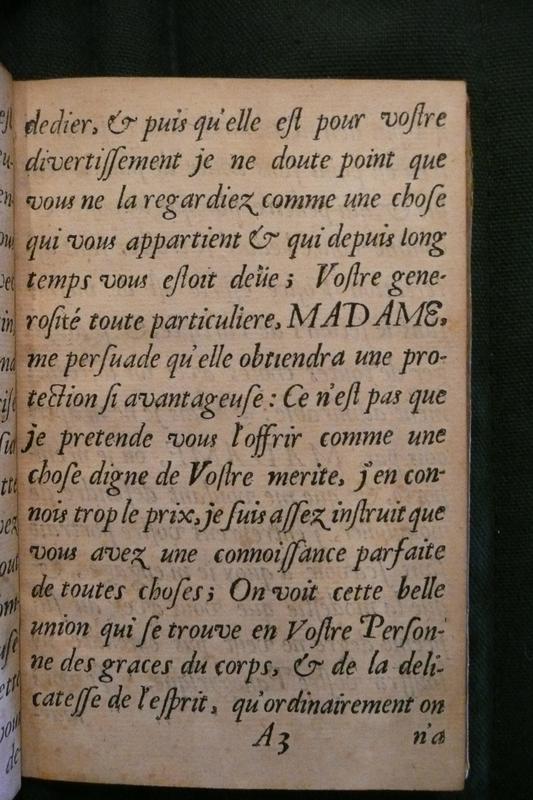 dedier, & puis qu'elle eſt pour voſtre
divertiſſement je ne doute point que
vous ne la regardiez comme une choſe
qui vous appartient & qui depuis long
temps vous eſtoit deüe ; Voſtre gene-
roſité toute particuliere, MADAME,
me perſuade qu'elle obtiendra une pro-
tection ſi avantageuſe : Ce n'eſt pas que
je pretende vous l'offrir comme une
choſe digne de Voſtre merite, j'en con-
nois trop le prix, je ſuis aſſez inſtruit que
vous avez une connoiſſance parfaite
de toutes choſes ; On voit cette belle
union qui ſe trouve en Voſtre Perſon-
ne des graces du corps, & de la deli-
cateſſe de l'eſprit, qu'ordinairement on
A3 n'a